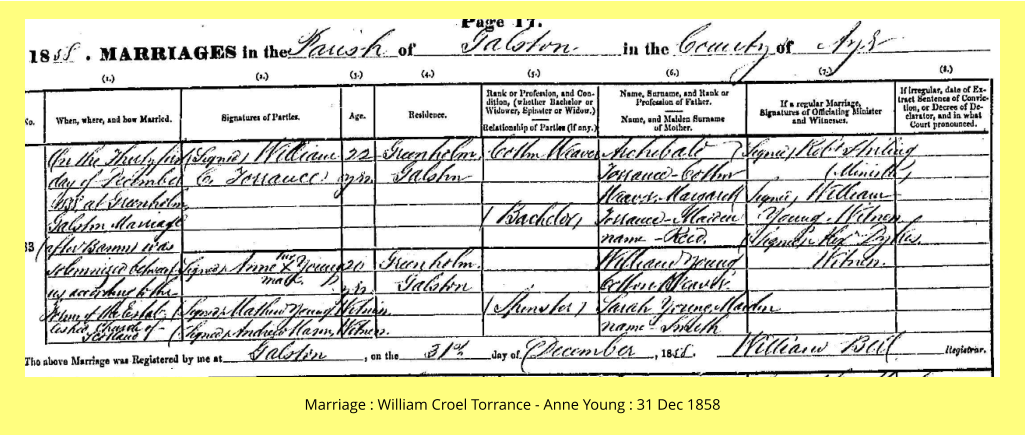 Page 17.
1858. MARRIAGES in the Parish of Galston in the County of Ayr
(1.) (2.) (3.) (4.) (5.) (6.) (7.) (8.)
No.
When, where, and how Married.
Signatures of Parties.
Age.
Residence.
Rank or Profession, and Con-
dition, (whether Bachelor or
Widower, Spinster or Widow.)
Relationship of Parties (if any.)
Name, Surname, and Rank or
Profession of Father.
Name, and Maiden Surname
of Mother.
If a regular Marriage,
Signatures of Officiating Minister
and Witnesses.
If irregular, date of Ex-
tract Sentence of Convic-
tion, or Decree of De-
clarator, and in what
Court pronounced.
On the Thirty first
day of December
1858 at Greenholm
Galston Marriage
(after Banns) was
solemnized between
us according to the
Forms of the Estab-
lished Church of
Scotland
(Signed) William
C. Torrance
(Signed) Anne X Young
her
mark
(Signed) Mathew Young Witness.
(Signed) Andrew Mann, Witness.
22
yrs
20
yrs
Greenholm
Galston
Greenholm.
Galston
Cotton Weaver
(Bachelor)
(Spinster)
Archibald
Torrance Cotton
Weaver. Margaret
Torrance Maiden
name Reid.
William Young
Cotton Weaver.
Sarah Young Maiden
name Smith
(Signed) Robt Stirling
(Minister)
(Signed) William
Young Witness
(Signed)
Witness.
The above Marriage was Registered by me at Galston, on the 31st day of December, 1858. William Bell Registrar.
Marriage : William Croel Torrance - Anne Young : 31 Dec 1858